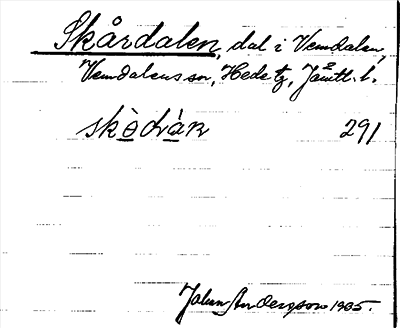 Skårdalen, dal i Vemdalen,
Vemdalens sn, Hede tg, Jämtl. l.
skòdràn 291
Johan Anderzson 1935.